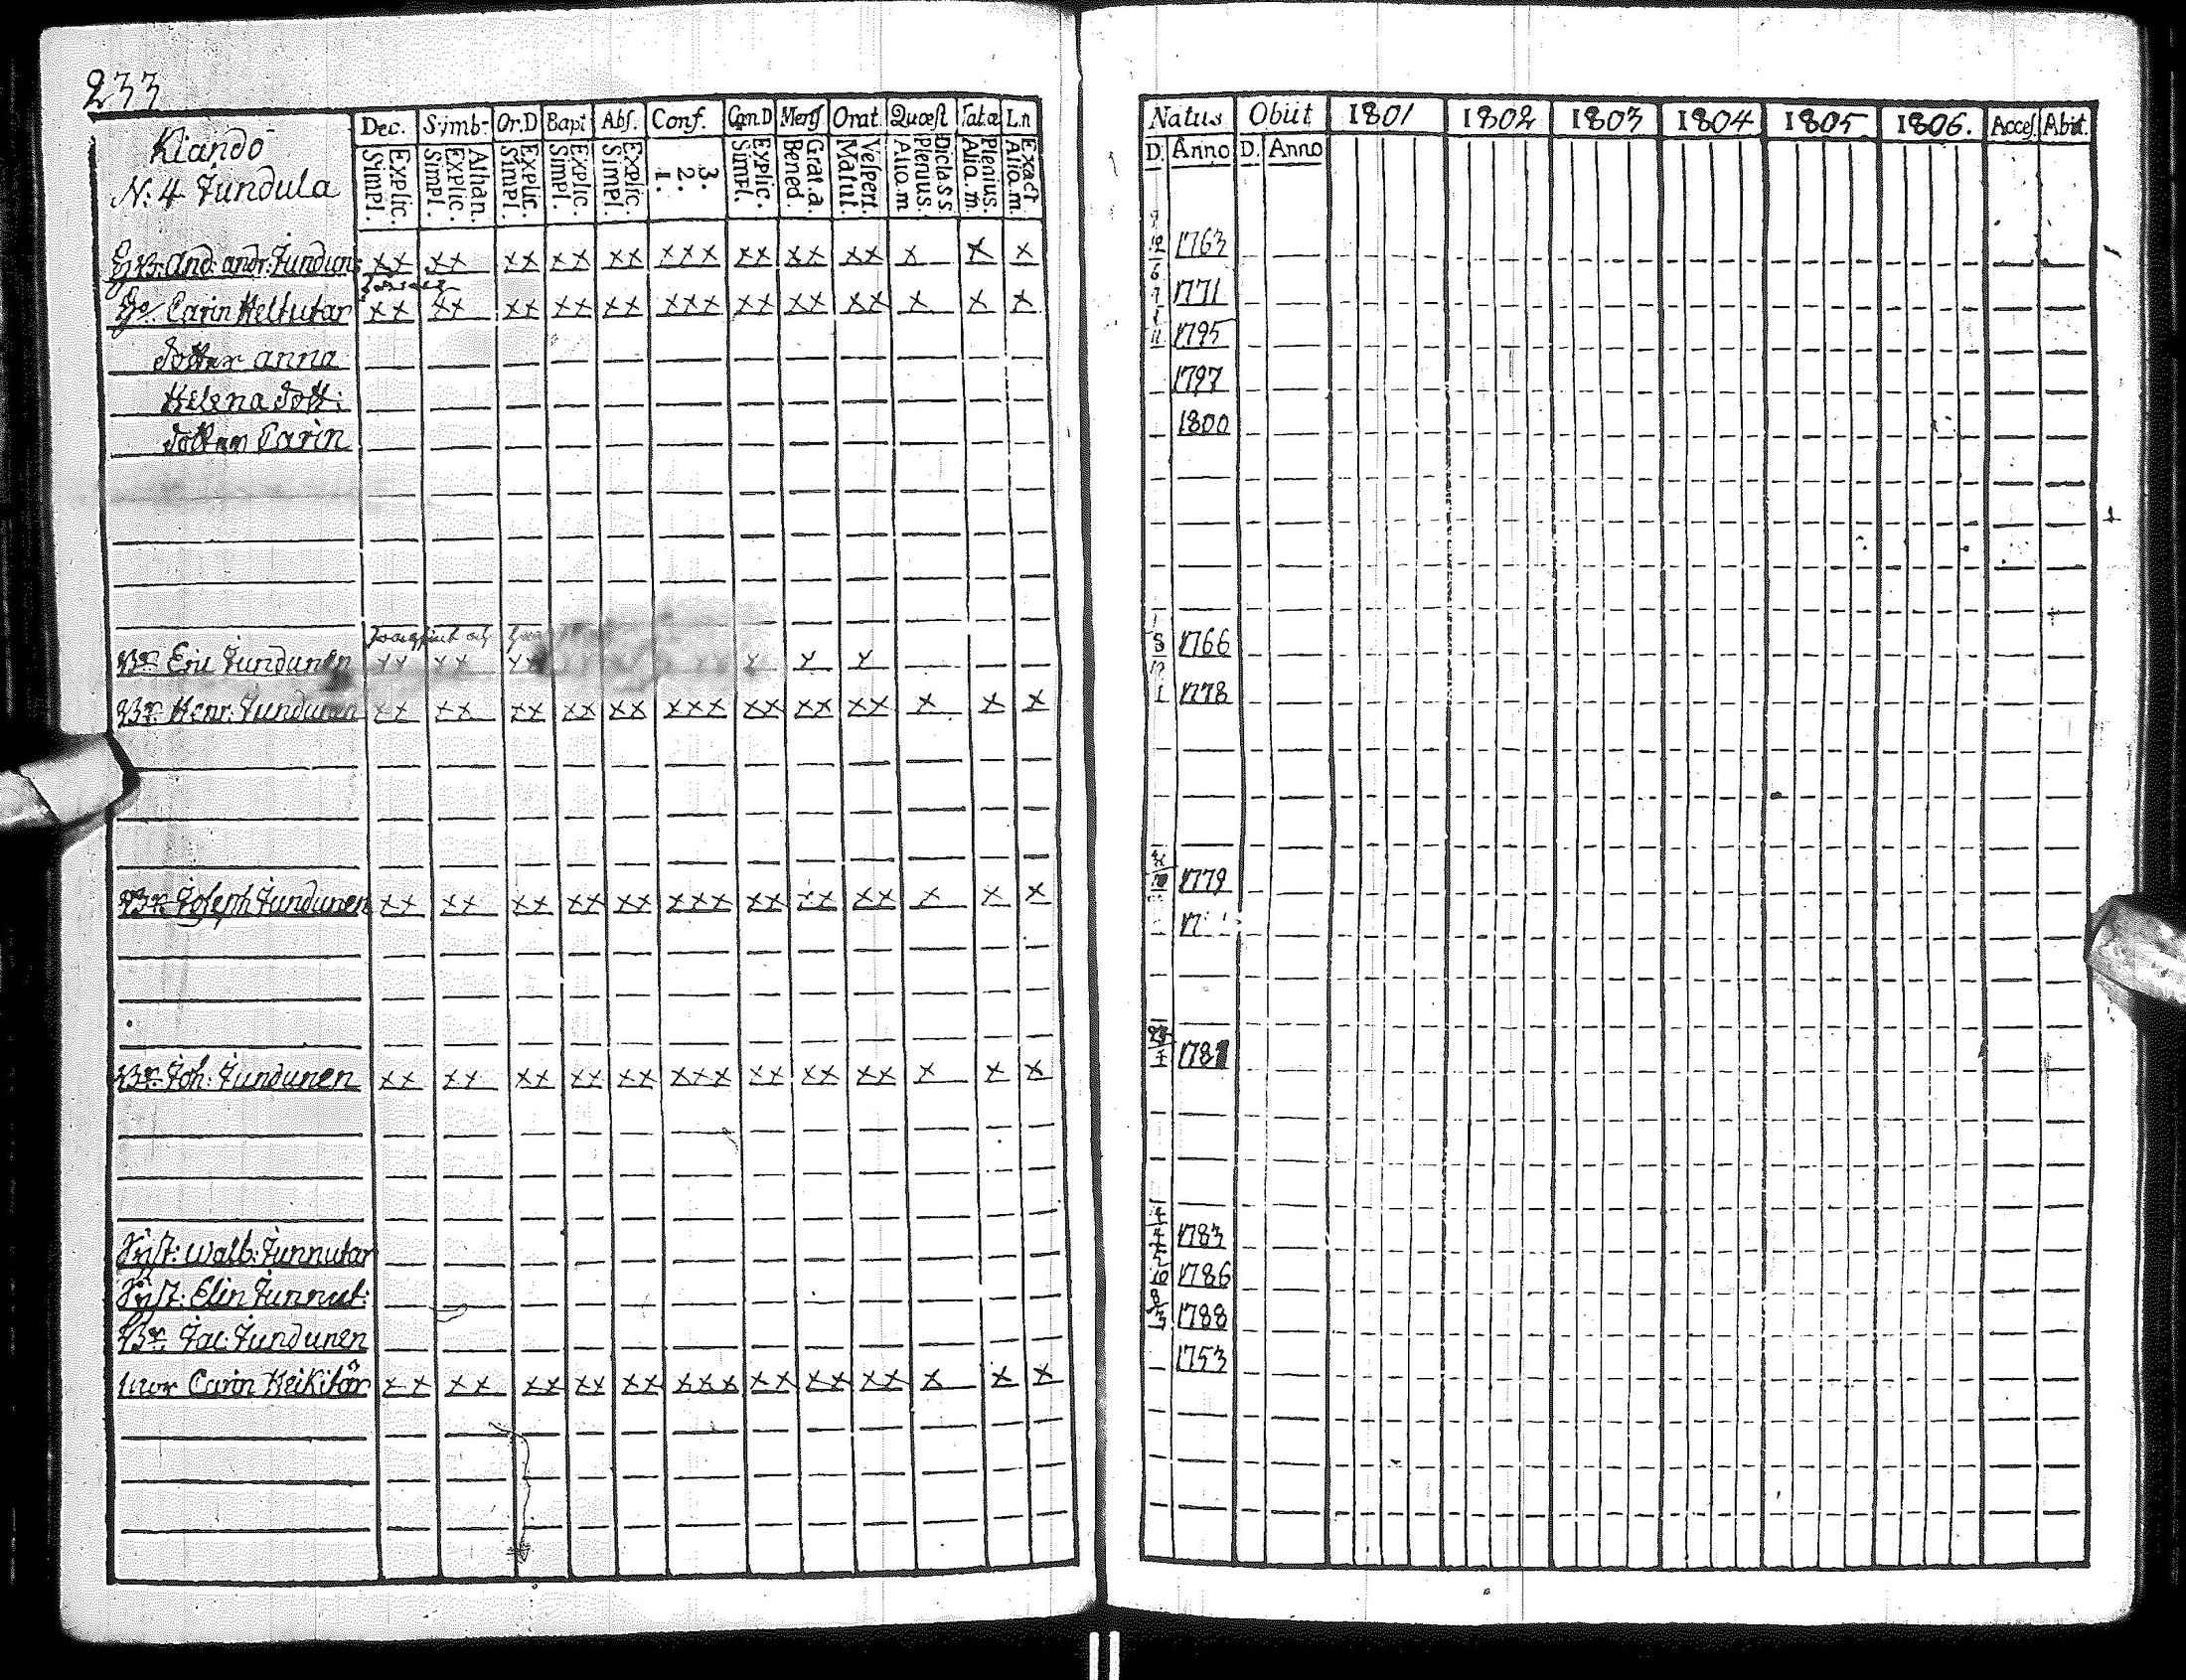 233
Dec. Symb. Or.D Bapt Abs. Conf. Cœn.D Mens Orat. Quæst Tatæ L.n
Kiando
N:4 Jundula
Simpl. Explic. Simpl. Explic. Athan. Simpl. Explic. Simpl. Explic. Simpl. Explic. 1. 2. 3. Simpl. Explic. Bened. Grat.a. Matut. Vespert. Aliq.m Plenius. Dicta S S Aliq.m. Plenius. Aliq.m. Exact
And: andr: Jundun xx xx xx xx xx xxx xx xx xx x x x
Carin Heltutar xx xx xx xx xx xxx xx xx xx x x x
dotter anna
Helena dott:
dotter Carin
Br Eric Jundunen xx xx xx x x x
Br. Henr: Jundunen xx xx xx xx xx xxx xx xx xx x x x
Br. Joseph Jundunen xx xx xx xx xx xxx xx xx xx x x x
Br. Joh: Jundunen xx xx xx xx xx xxx xx xx xx x x x
Syst: Walb: Junnutar
Syst: Elin Junnut:
Br. Jac: Jundunen
Carin Heikitär xx xx xx xx xx xxx xx xx xx x x x
Natus Obiit 1801 1802 1803 1804 1805 1806. Acces. Abit.
D. Anno D. Anno
1763
1771
1795
1797
1800
1766
1778
1779
1783
1786
1788
1753